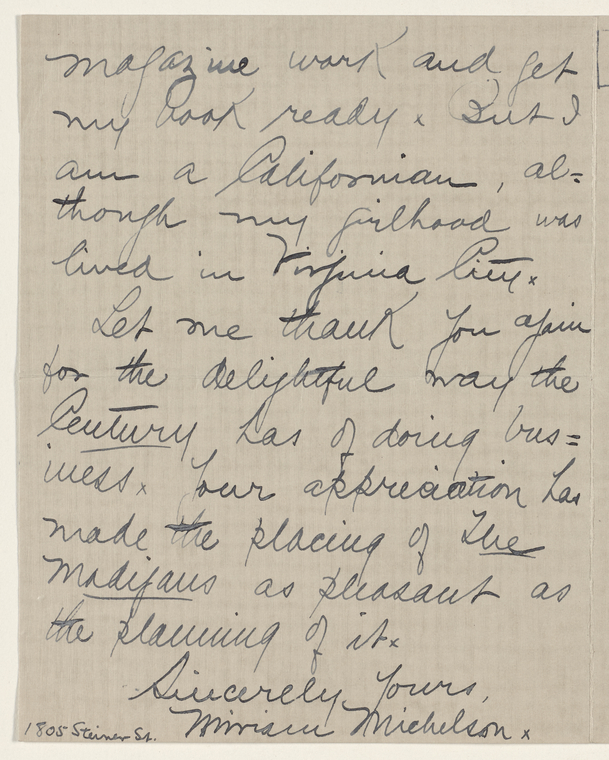 magazine work and get
my book ready. But I
am a Californian, al=
though my girlhood was
lived in Virginia City.
Let me thank you again
for the delightful way the
Century has of doing bus=
iness. Your appreciation has
made the placing of The
Madigans as pleasant as
the planning of it.
Sincerely Yours,
Miriam Michelson.
1805 Steiner St.